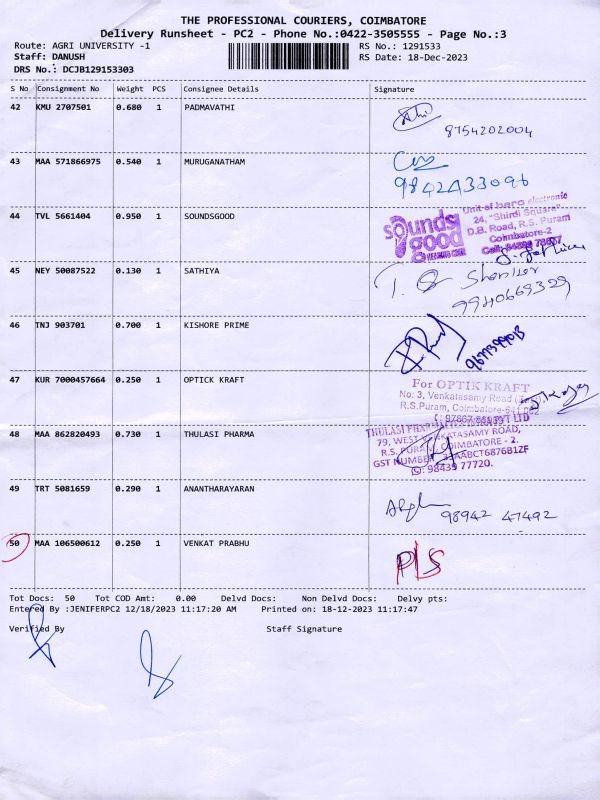 THE PROFESSIONAL COURIERS, COIMBATORE
Delivery Runsheet - PC2 - Phone No.:0422-3505555 - Page No.:3
Route: AGRI UNIVERSITY -1 RS No.: 1291533
Staff: DANUSH RS Date: 18-Dec-2023
DRS No.: DCJB129153303
S No Consignment No Weight PCS Consignee Details Signature
42 KMU 2707501 0.680 1 PADMAVATHI
8754202004
43 MAA 571866975 0.540 1 MURUGANATHAM
9842433096
44 TVL 5661404 0.950 1 SOUNDSGOOD
sounds good
Unit of bero electronic
24, "Shirdi Square"
D.B. Road, R.S. Puram
Coimbatore-2
45 NEY 50087522 0.130 1 SATHIYA
9940669329
46 TNJ 903701 0.700 1 KISHORE PRIME
47 KUR 7000457664 0.250 1 OPTICK KRAFT
For OPTIK KRAFT
No: 3, Venkatasamy Road
R.S.Puram, Coimbatore-641 002
48 MAA 862820493 0.730 1 THULASI PHARMA
79, WEST VENKATASAMY ROAD,
R.S. PURAM, COIMBATORE - 2.
GST NUMBER: 33AABCT6876B1ZF
98439 77720.
49 TRT 5081659 0.290 1 ANANTHARAYARAN
98942 47492
50 MAA 106500612 0.250 1 VENKAT PRABHU
P/S
Tot Docs: 50 Tot COD Amt: 0.00 Delvd Docs: Non Delvd Docs: Delvy pts:
Entered By :JENIFERPC2 12/18/2023 11:17:20 AM Printed on: 18-12-2023 11:17:47
Verified By Staff Signature